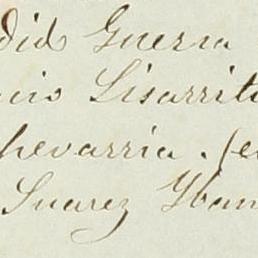 did Guerra
cio Lisarritu
hevarria . fe
Suarez Yban